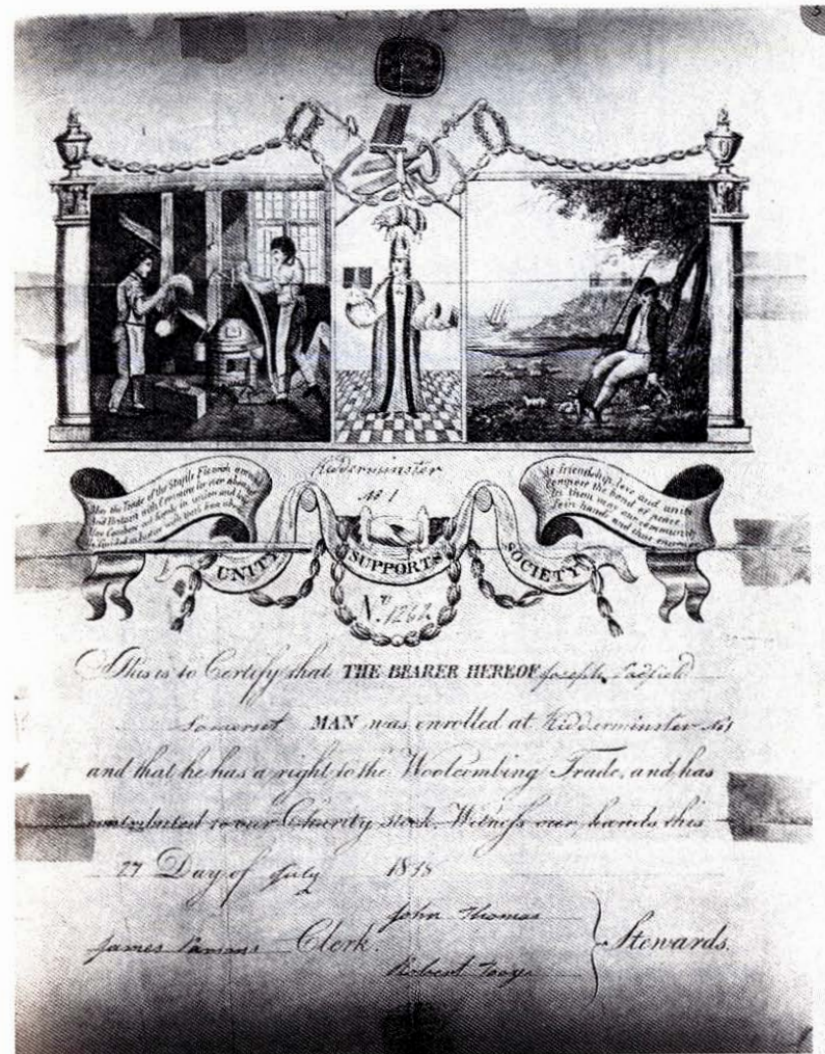 May the Trade of the Staple Flourish
And Britain with Commerce for ever
in union and
Kidderminster
No 1
As friendship, love and unity
Compose the bond of peace
In them may our community
Join hands and
UNITY SUPPORTS SOCIETY
No. 1262
This is to Certify that THE BEARER HEREOF Joseph Padfield
Somerset MAN was enrolled at Kidderminster No1
and that he has a right to the Woolcombing Trade, and has
contributed to our Charity stock. Witness our hands this
27 Day of July 18
John Thomas
James Parsons Clerk. Stewards.
Robert